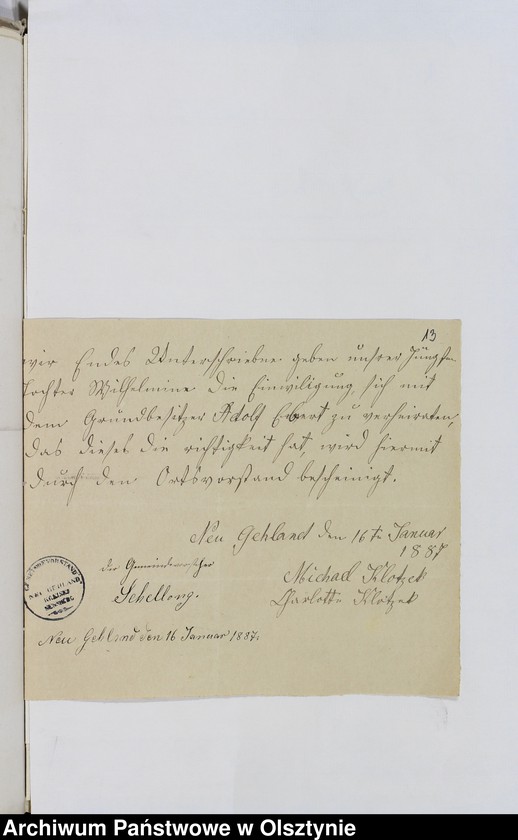 13
wir Endes Unterschriebne geben unsrer Jüngsten
tochter Wilhelmine die Einwiligung sich mit
dem Grundbesitzer Adolf Ebert zu verheiraten,
das dieses die richtigkeit hat, wird hiermit
durch den Ortsvorstand bescheinigt.
Neu Gehland den 16 te Januar
1887
der Gemeindevorsteher
Schellong.
Michael Klotzek
Charlotte Klotzek
GEMEINDEVORSTAND
NEU GEHLAND
KREISES
SENSBURG
Neu Gehland den 16 Januar 1887.
Archiwum Państwowe w Olsztynie